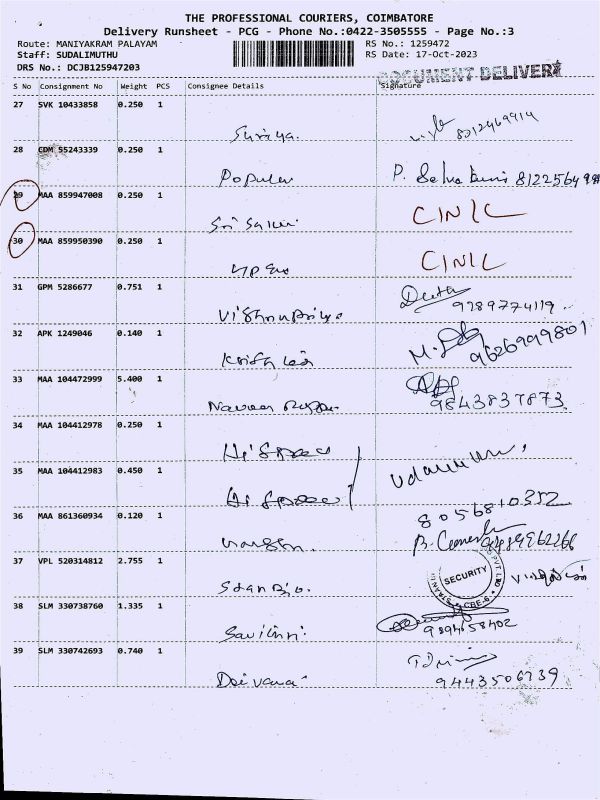 THE PROFESSIONAL COURIERS, COIMBATORE
Delivery Runsheet - PCG - Phone No.:0422-3505555 - Page No.:3
Route: MANIYAKRAM PALAYAM RS No.: 1259472
Staff: SUDALIMUTHU RS Date: 17-Oct-2023
DRS No.: DCJB125947203
DOCUMENT DELIVERY
S No Consignment No Weight PCS Consignee Details Signature
27 SVK 10433858 0.250 1
Suriya. 8212469914
28 CDM 55243339 0.250 1
Populer P. Selva 8122564
29 MAA 859947008 0.250 1
Sri Sakui CINIC
30 MAA 859950390 0.250 1
CINIC
31 GPM 5286677 0.751 1
Vishnupriya 9789774119
32 APK 1249046 0.140 1
9626999801
33 MAA 104472999 5.400 1
Naveen 9843837873
34 MAA 104412978 0.250 1
Hi Space
35 MAA 104412983 0.450 1
Hi Space
8056810352
36 MAA 861360934 0.120 1
37 VPL 520314812 2.755 1
Stanbio. SECURITY
38 SLM 330738760 1.335 1
Savithri 9894658402
39 SLM 330742693 0.740 1
Deivanai 9443506739